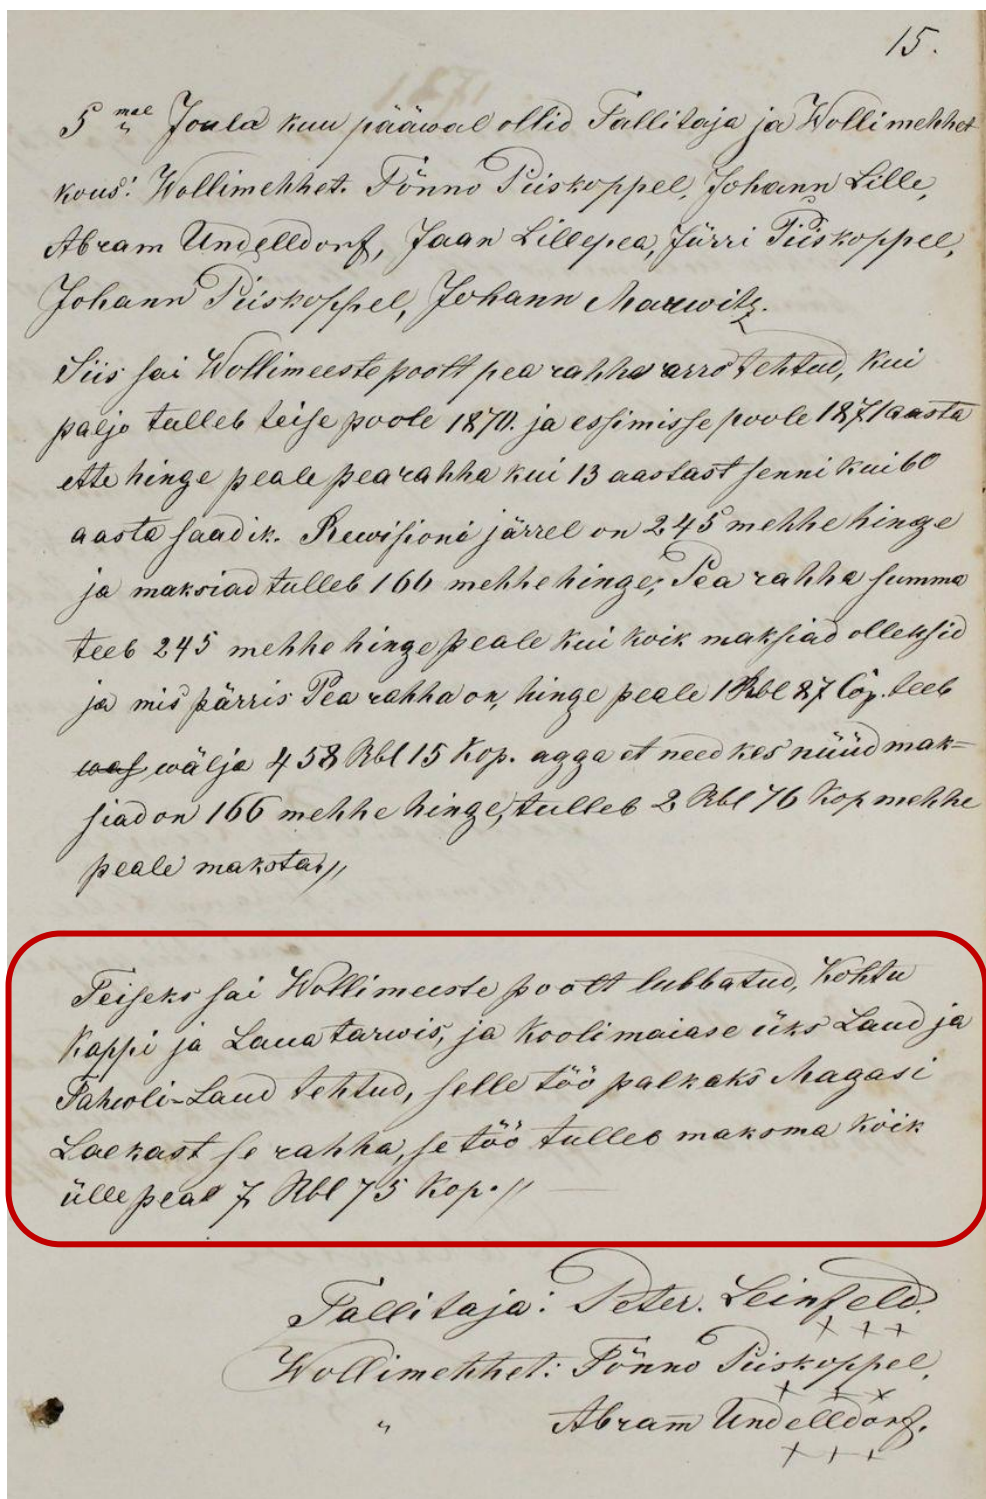 15.
5 mal Joula kuu pääwal ollid Tallitaja ja Wollimehhet
kous: Wollimehhet. Tönno Piiskoppel, Johann Lille,
Abram Undelldorf, Jaan Lillepea, Jürri Piiskoppel,
Johann Piiskoppel, Johann Marwitz.
Siis sai Wollimeeste poolt pea rahha arro tehtud, kui
paljo tulleb teise poole 1870. ja essimisse poole 1871 aasta
ette hinge peale pearahha kui 13 aastast senni kui 60
aasta saadik. Rewisioni järrel on 245 mehhe hinge
ja maksiad tulleb 166 mehhe hinge; Pea rahha summa
teeb 245 mehhe hinge peale kui koik maksiad olleksid
ja mis pärris Pea rahha on, hinge peale 1 Rbl 87 Cop. teeb
wälja 458 Rbl 15 Kop. agga et need kes nüüd mak=
siad on 166 mehhe hinge, tulleb 2 Rbl 76 Kop mehhe
peale maksta,//
Teiseks sai Wollimeeste poolt lubbatud, Kohtu
Kappi ja Laua tarwis, ja Koolimaiase üks Laud ja
Tahwli-Laud tehtud, selle töö palkaks Magasi
Laekast se rahha, se töö tulleb maksma köik
ülle peal 7 Rbl 75 Kop.//
Tallitaja: Peter. Leinfeld.
+++
Wollimehhet: Tönno Piiskoppel.
+++
" Abram Undelldorf.
+++